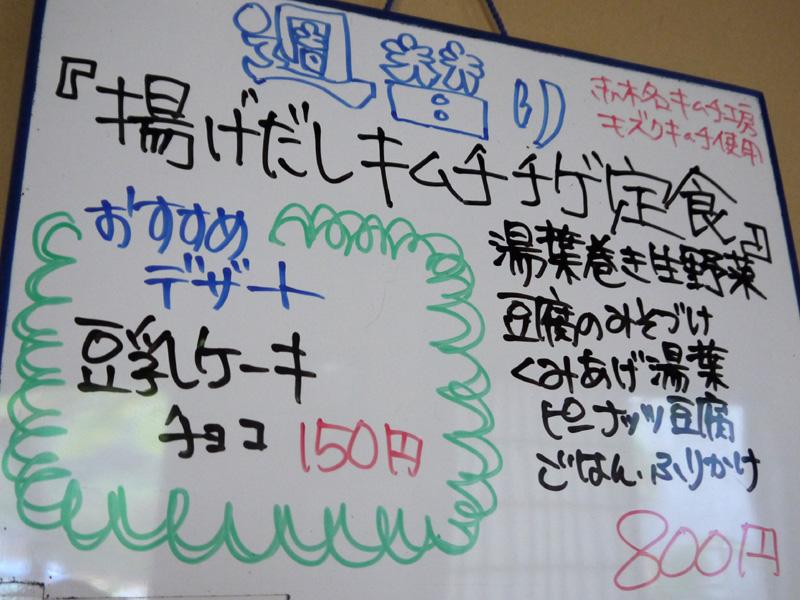 週替り
『揚げだしキムチチゲ定食』
キムチ工房
キズクキムチ使用
おすすめ
デザート
豆乳ケーキ
チョコ 150円
湯葉巻き生野菜
豆腐のみそづけ
くみあげ湯葉
ピーナッツ豆腐
ごはん、ふりかけ
800円